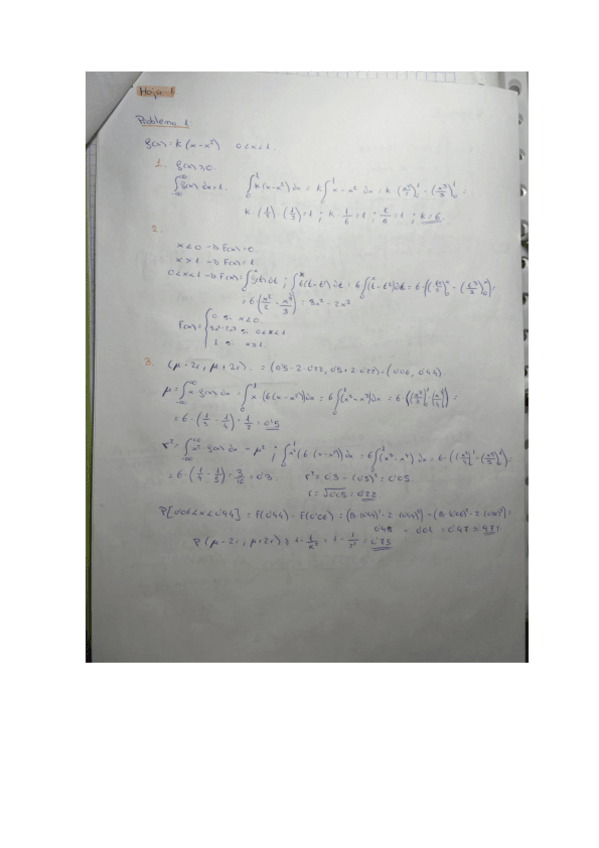 Hoja 1
Problema 1:
f(x) = k(x-x²) 0<x<1.
1. f(x)≥0.
∫_{-∞}^{+∞} f(x) dx = 1. ∫_0^1 k(x-x²)dx = k∫_0^1 x-x² dx = k (x²/2)_0^1 - (x³/3)_0^1 =
k·(1/2)-(1/3)=1 ; k·1/6=1 ; k/6=1 ; k=6.
2.
x<0 → F(x)=0.
x>1 → F(x)=1.
0<x<1 → F(x)=
= 6(x²/2 - x³/3) = 3x² - 2x³
F(x)= { 0 si x≤0.
3x²-2x³ si 0<x<1
1 si x≥1.
3. (μ-2σ, μ+2σ) = (0'5-2·0'22, 0'5+2·0'22)=(0'06, 0'94).
μ=∫_{-∞}^{+∞} x f(x) dx = ∫_0^1 x·(6(x-x²))dx = 6∫_0^1 (x²-x³)dx = 6·((x³/3)_0^1-(x⁴/4)_0^1) =
= 6·(1/3 - 1/4) = 1/2 = 0'5
σ²=∫_{-∞}^{+∞} x² f(x) dx - μ² ; ∫_0^1 x²(6·(x-x²))dx = 6∫_0^1 (x³-x⁴) dx = 6·((x⁴/4)_0^1-(x⁵/5)_0^1) =
= 6·(1/4 - 1/5) = 3/10 = 0'3. σ²= 0'3 - (0'5)² = 0'05.
σ = √0'05 = 0'22.
P[0'06<x<0'94] = F(0'94) - F(0'06) =
P(μ-2σ, μ+2σ) ≥ 1 - 1/k² = 1 - 1/2² = 0'75